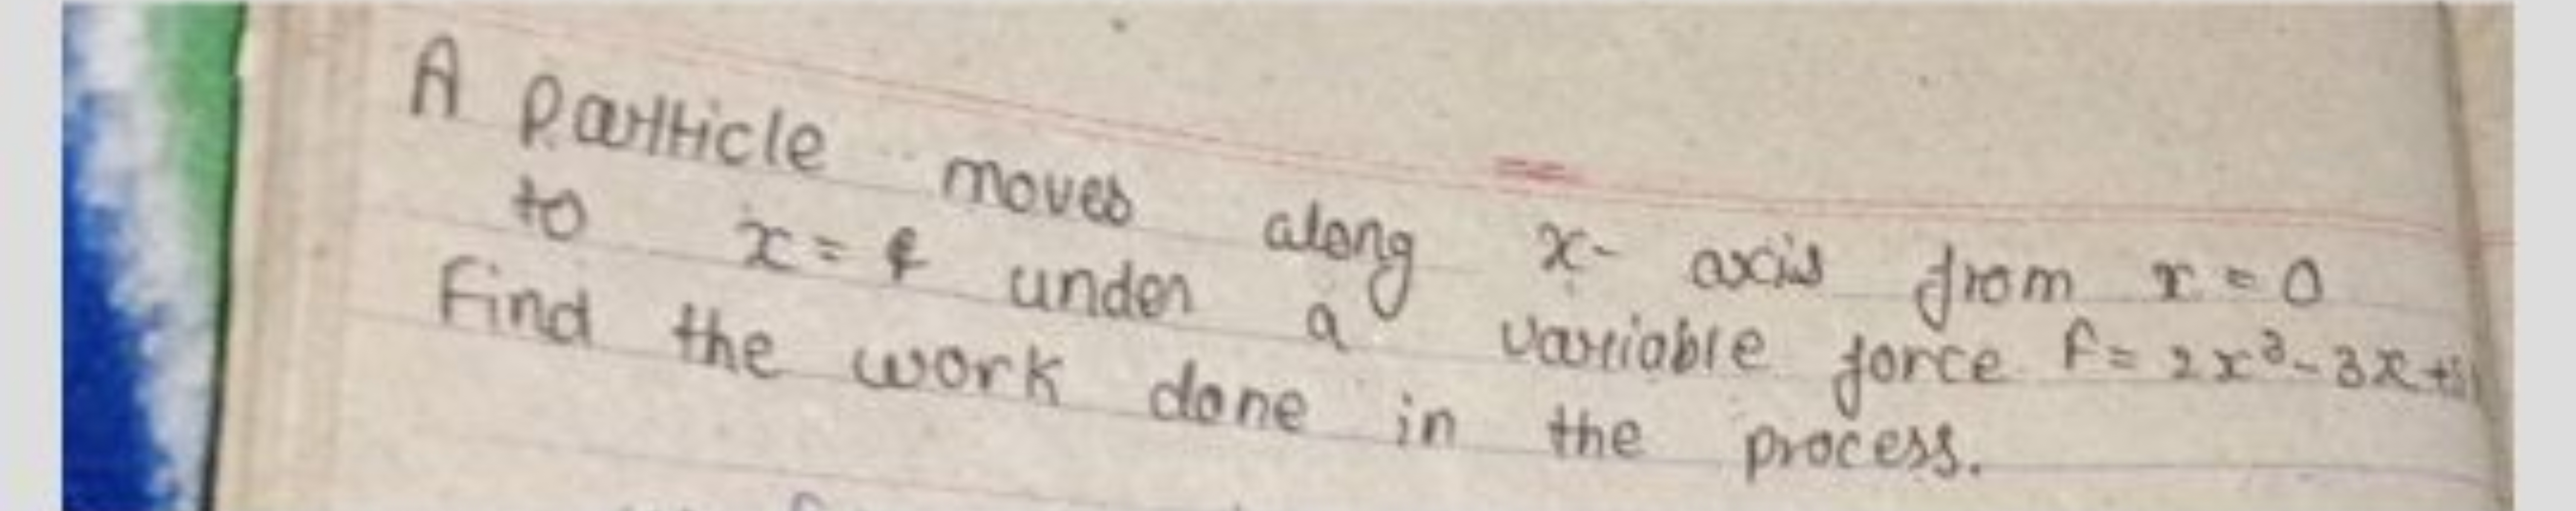 A particle moves along x- axis from x = 0
to x = 4 under a variable force F = 2x³ - 3x +
Find the work done in the process.